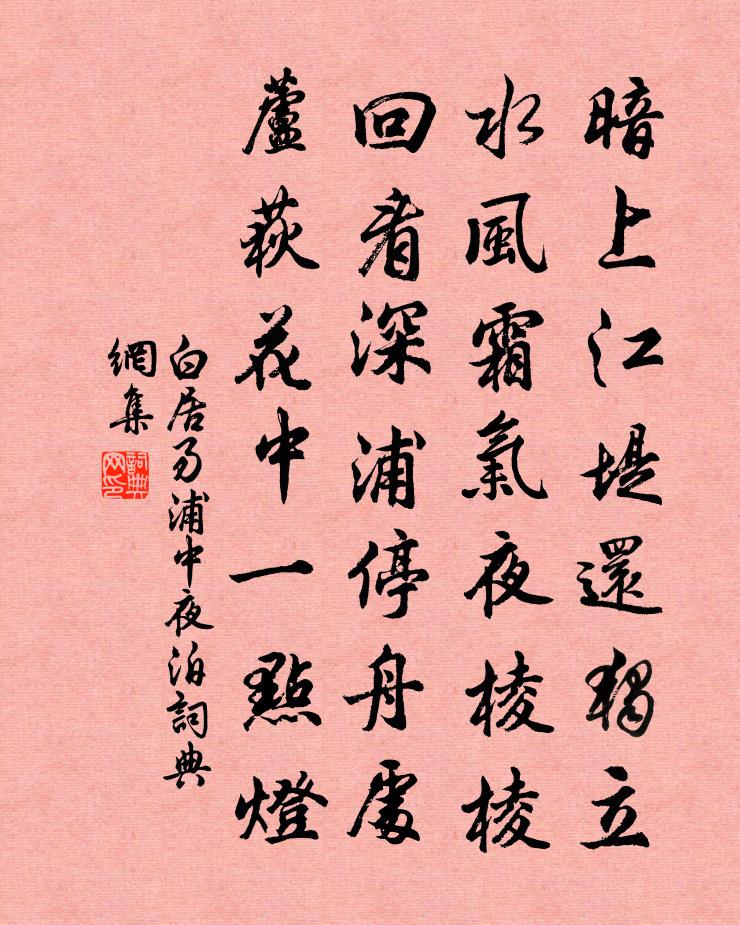 暗上江堤還獨立
水風霜氣夜棱棱
回看深浦停舟處
蘆荻花中一點燈
白居易浦中夜泊詞典
網集
詞典網印